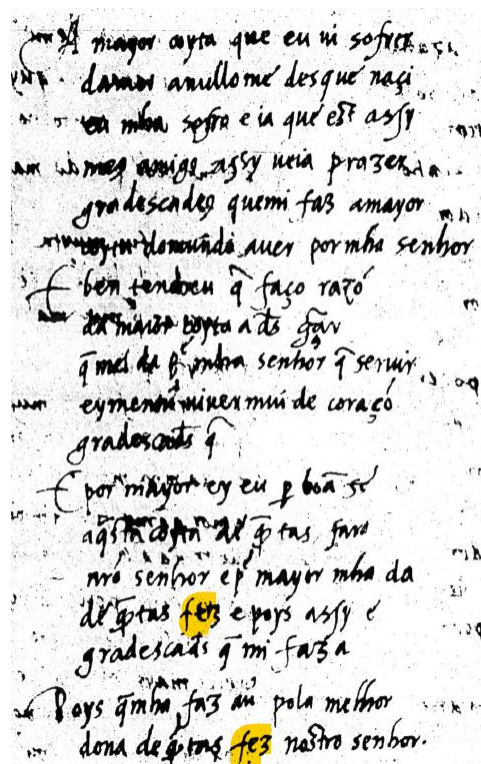 A mayor coyta que eu vi sofrer
damor a nullome desque naçi
eu mha sofro e ia que est assy
meu amigo assy veia prazer
gradescades quemi faz amayor
coyta domundo auer por mha senhor
ben tendeu q̃ faço razõ
da maior coyta a ds̃
q̃ mel da mha senhor q̃ seruir
ey viuer mui de coraçõ
gradescads̃ q̃
por mayor ey eu ꝑ boã fe
aq̃sta coyta de q̃tas fara
nrõ senhor e mayor mha da
de q̃tas fez e poys assy e
gradescads̃ q̃ mi faz a
Poys q̃mha faz au pola melhor
dona de q̃tas fez nostro senhor.